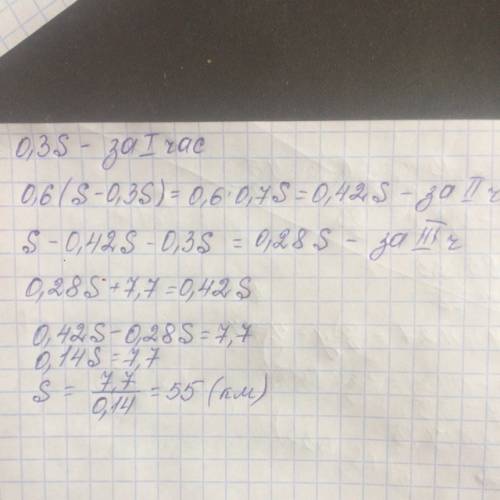 0,3S - за I час
0,6(S-0,3S) = 0,6·0,7S = 0,42S - за II ч
S - 0,42S - 0,3S = 0,28S - за III ч
0,28S + 7,7 = 0,42S
0,42S - 0,28S = 7,7
0,14S = 7,7
S = 7,7/0,14 = 55 (км)